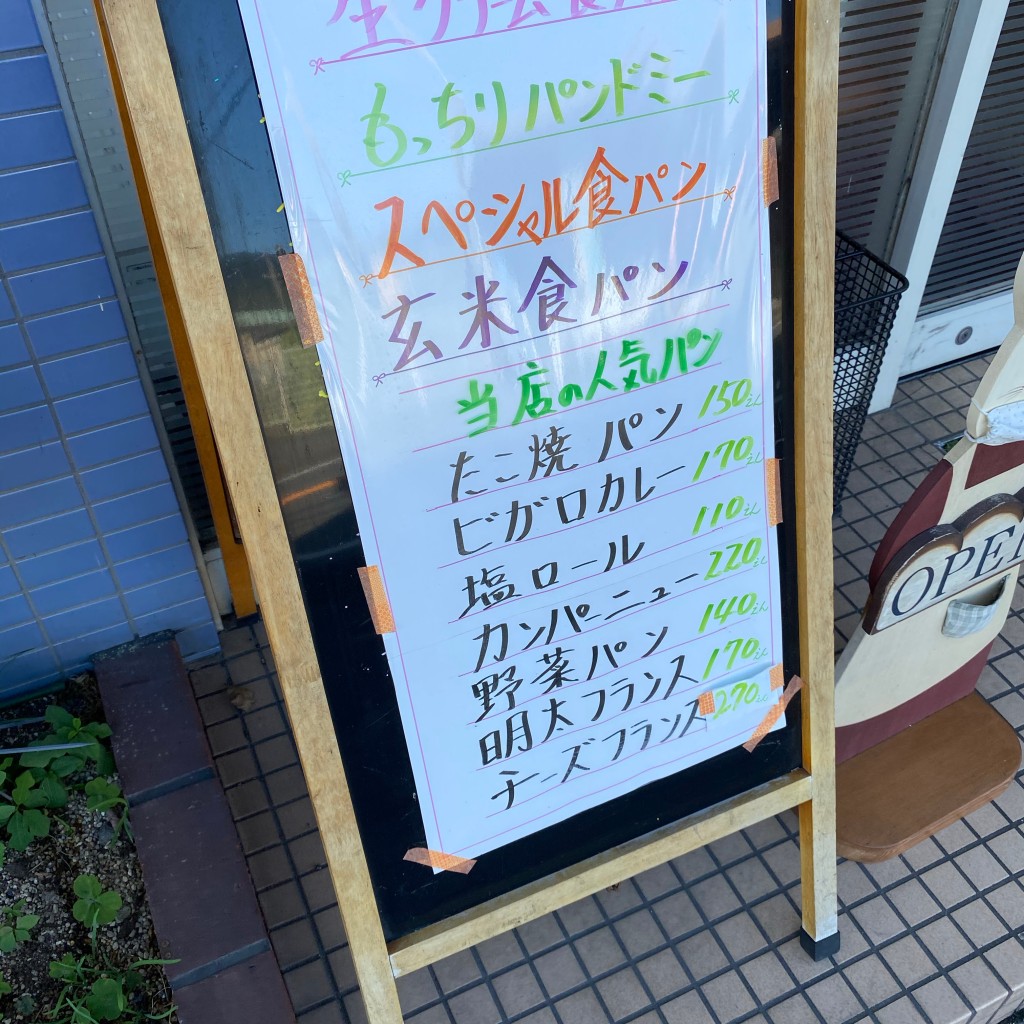 生クリーム食パン
もっちりパンドミー
スペシャル食パン
玄米食パン
当店の人気パン
たこ焼パン 150えん
ビガロカレー 170えん
塩ロール 110えん
カンパーニュー 220えん
野菜パン 140えん
明太フランス 170えん
チーズフランス 270えん
OPEN